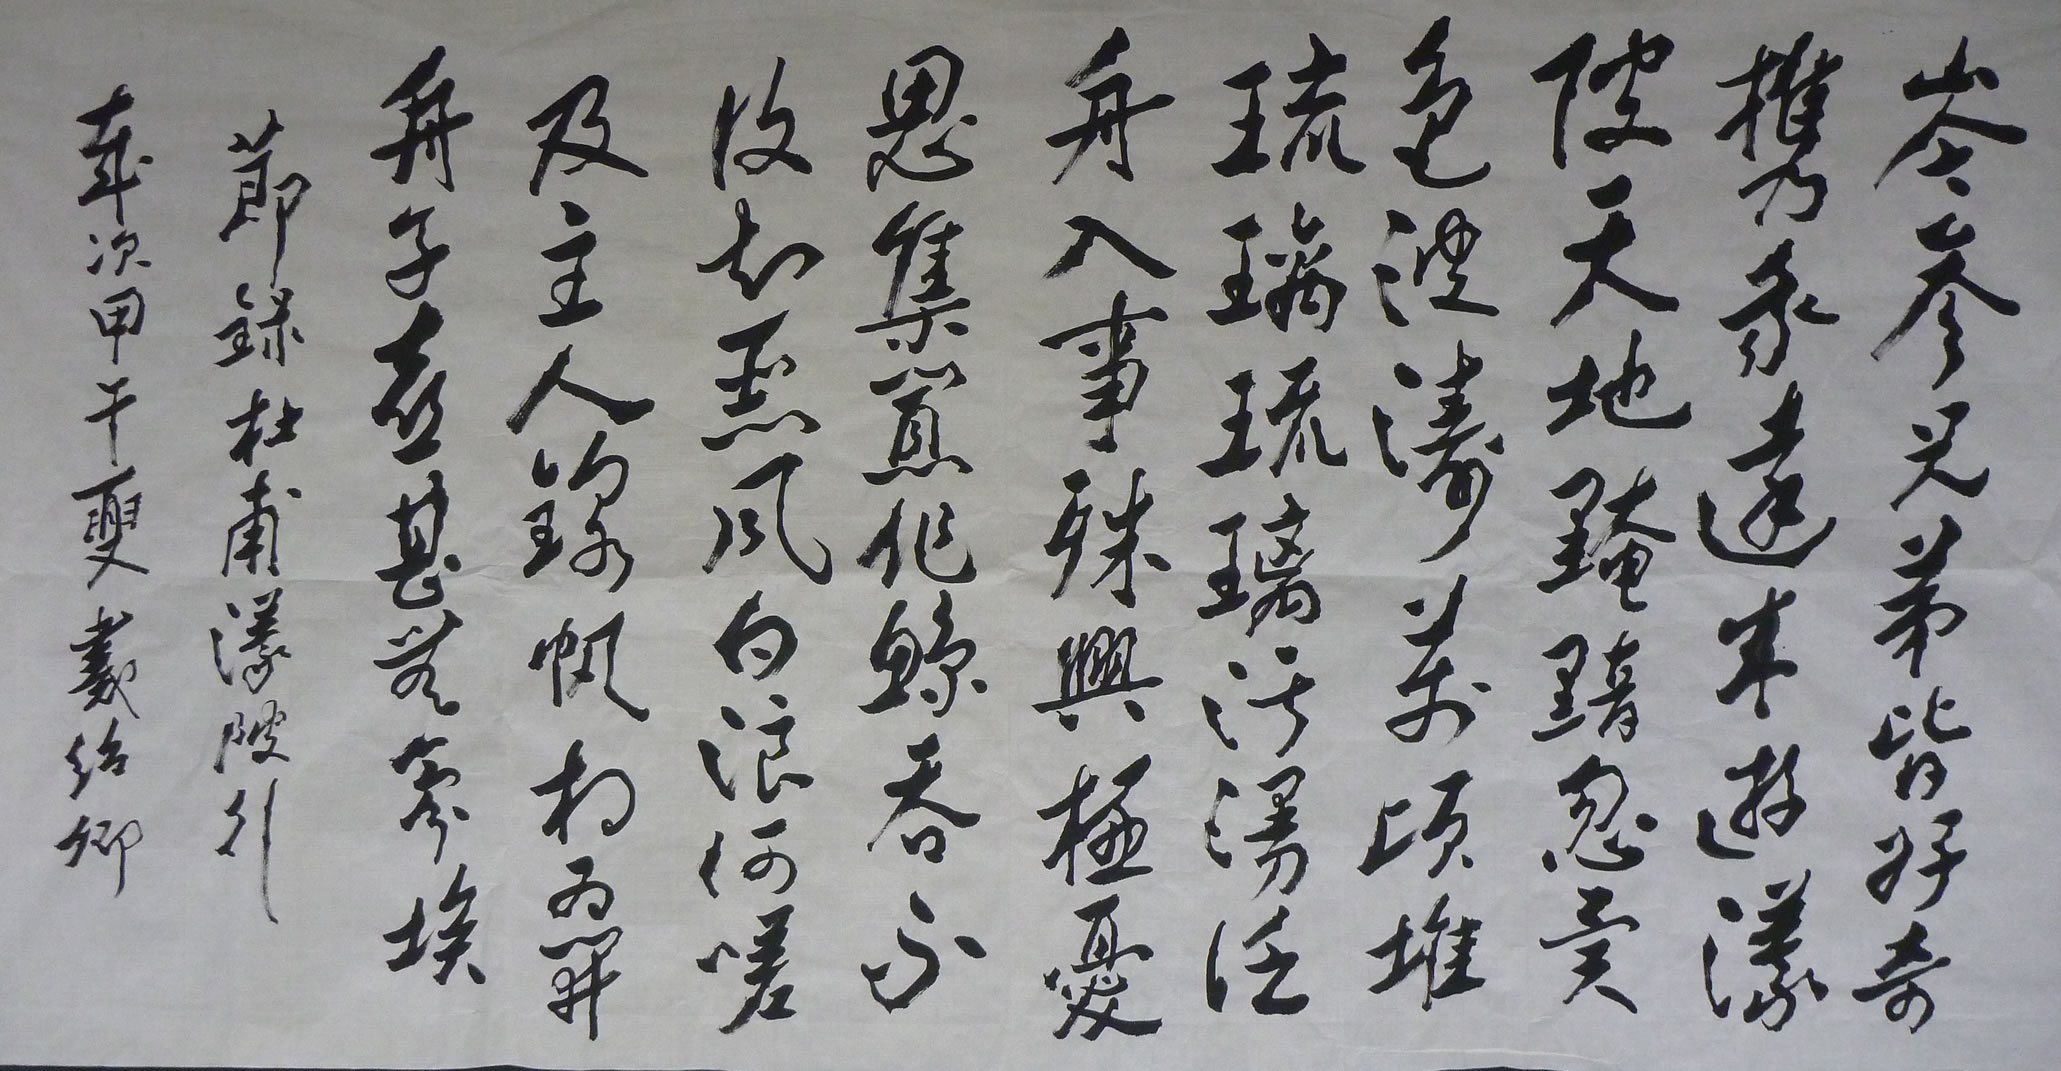 岑參兄弟皆好奇
携我遠來遊濛
陂天地黤黯忽異
色波濤萬頃堆
琉璃琉璃汗漫泛
舟入事殊興極憂
思集鼉作鯨吞不
復知惡風白浪何嗟
及主人錦帆相為開
舟子喜甚無氛埃
節錄杜甫濛陂行
歲次甲午夏戴紹卿